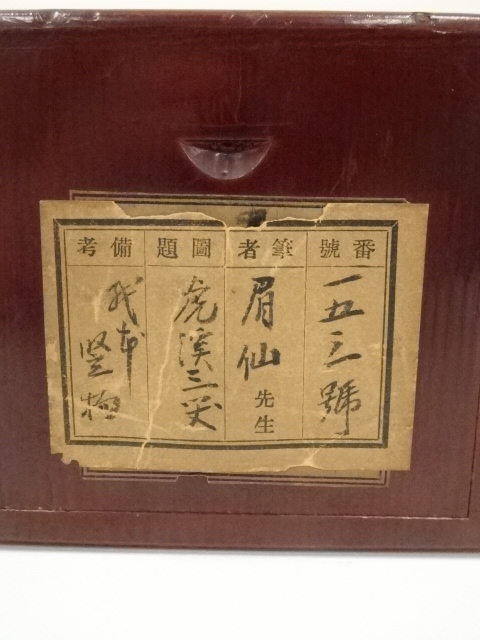 番號
一五三號
筆者
眉仙先生
圖題
虎溪三笑
備考
本竪物